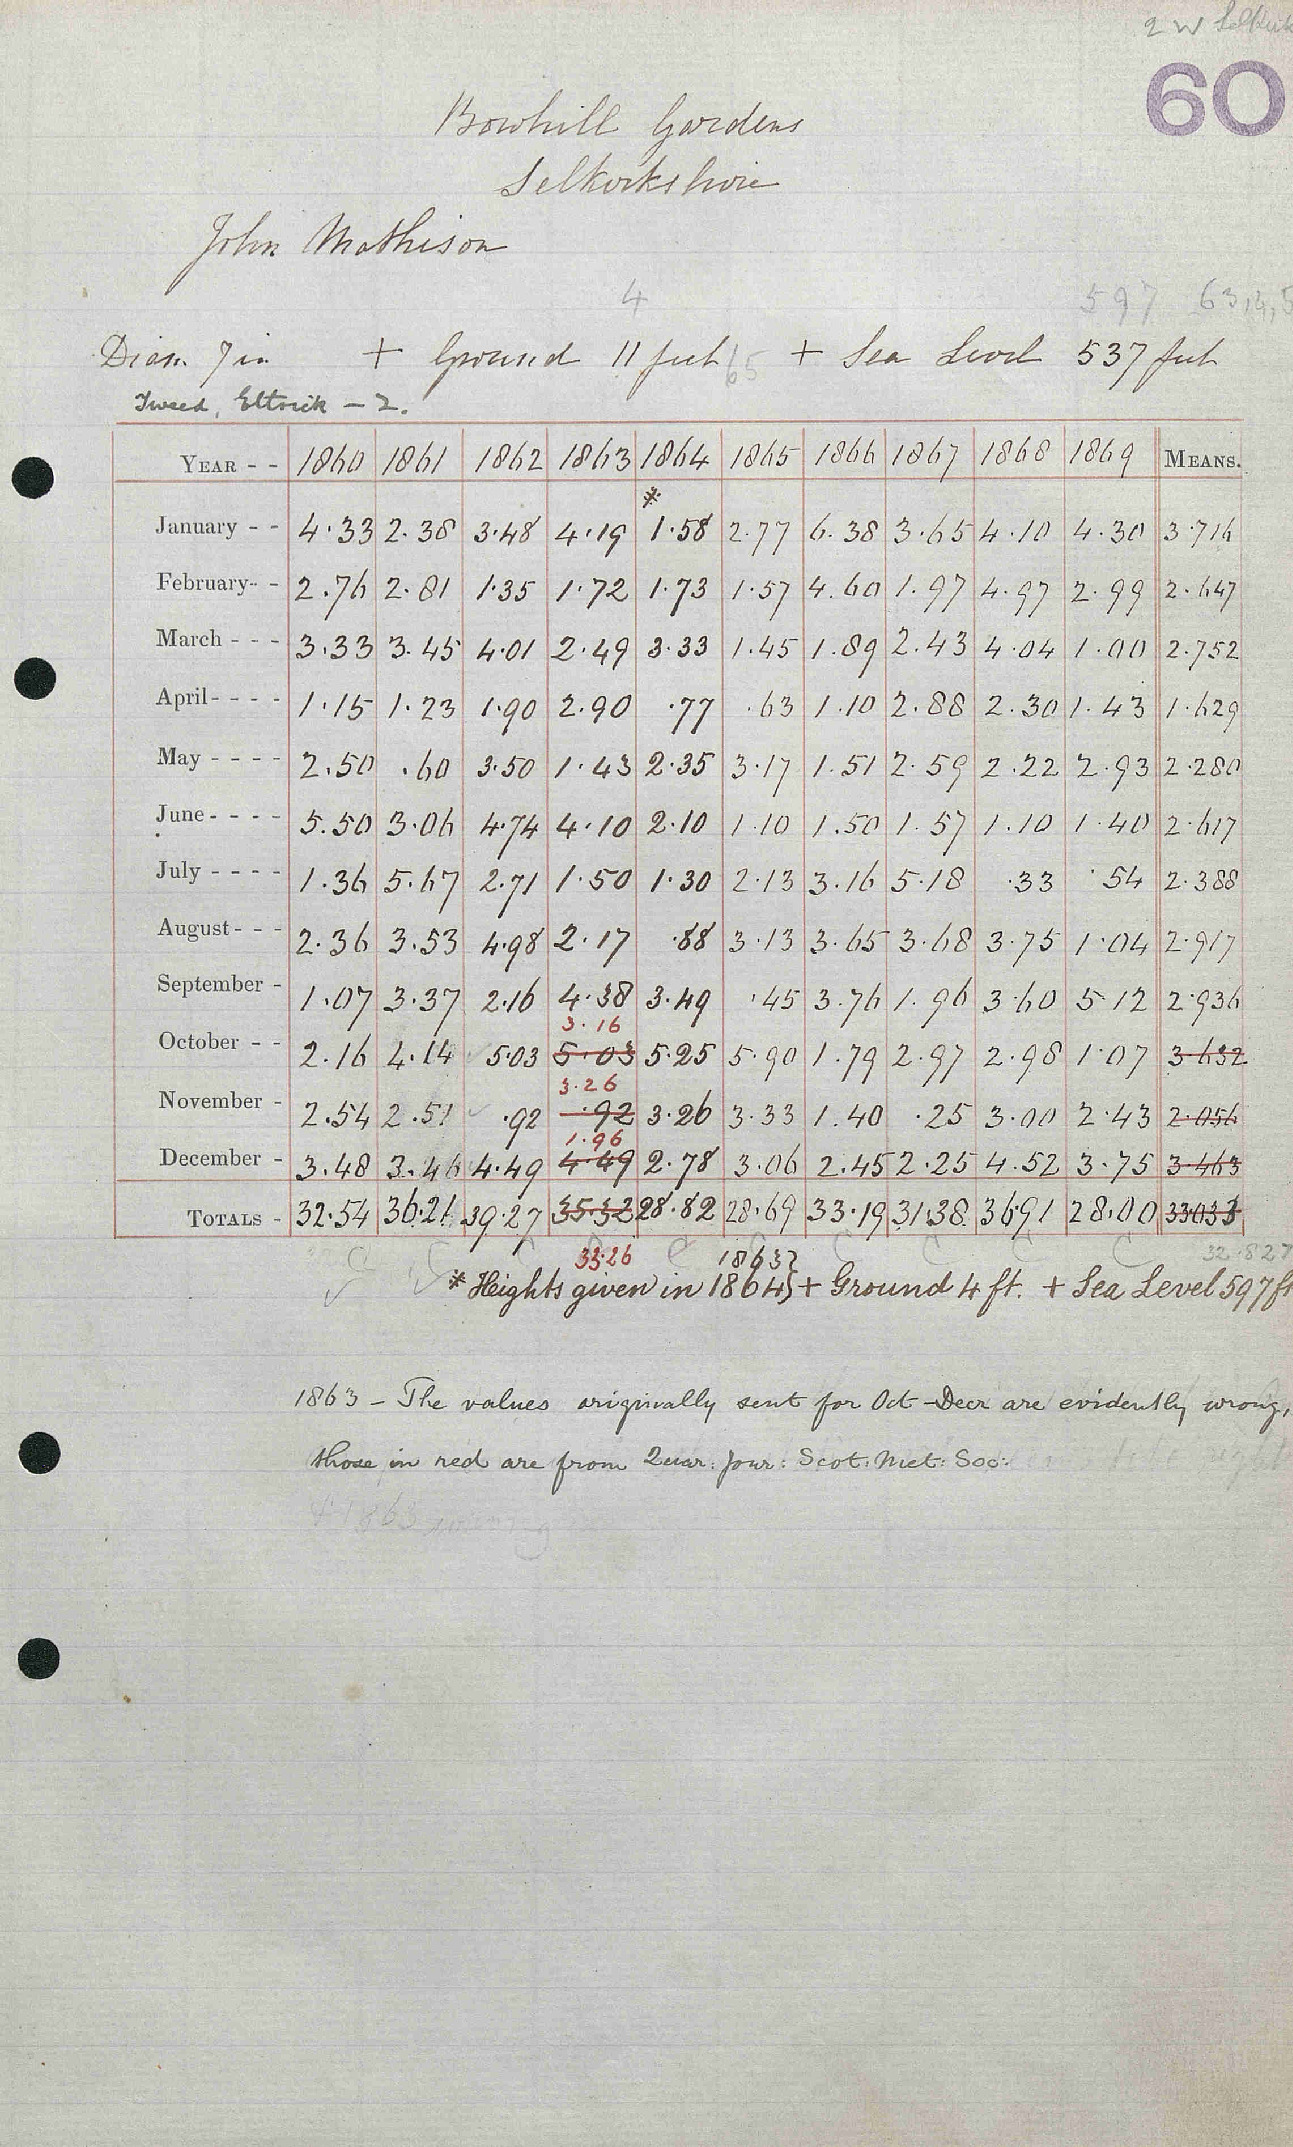 2 W Selkirk
60
Bowhill Gardens
Selkirkshire
John Mathison
4 597 63,4,5
Diam. 7 in + Ground 11 feet 65 + Sea Level 537 feet
Tweed, Ettrick – 2.
YEAR - - 1860 1861 1862 1863 1864 1865 1866 1867 1868 1869 MEANS.
*
January - - 4.33 2.38 3.48 4.19 1.58 2.77 6.38 3.65 4.10 4.30 3.716
February - - 2.76 2.81 1.35 1.72 1.73 1.57 4.60 1.97 4.97 2.99 2.647
March - - - 3.33 3.45 4.01 2.49 3.33 1.45 1.89 2.43 4.04 1.00 2.752
April - - - - 1.15 1.23 1.90 2.90 .77 .63 1.10 2.88 2.30 1.43 1.629
May - - - - 2.50 .60 3.50 1.43 2.35 3.17 1.51 2.59 2.22 2.93 2.280
June - - - - 5.50 3.06 4.74 4.10 2.10 1.10 1.50 1.57 1.10 1.40 2.617
July - - - - 1.36 5.67 2.71 1.50 1.30 2.13 3.16 5.18 .33 .54 2.388
August - - - 2.36 3.53 4.98 2.17 .88 3.13 3.65 3.68 3.75 1.04 2.917
September - 1.07 3.37 2.16 4.38 3.49 .45 3.76 1.96 3.60 5.12 2.936
3.16
October - - 2.16 4.14 5.03 5.03 5.25 5.90 1.79 2.97 2.98 1.07 3.632
3.26
November - 2.54 2.51 .92 .92 3.26 3.33 1.40 .25 3.00 2.43 2.056
1.96
December - 3.48 3.46 4.49 4.49 2.78 3.06 2.45 2.25 4.52 3.75 3.463
TOTALS - 32.54 36.21 39.27 35.32 28.82 28.69 33.19 31.38 36.91 28.00 33.033
33.26 1863 32.827
* Heights given in 1864} + Ground 4 ft. + Sea Level 597 ft
1863 – The values originally sent for Oct–Decr are evidently wrong,
those in red are from Quar: Jour: Scot: Met: Soc: